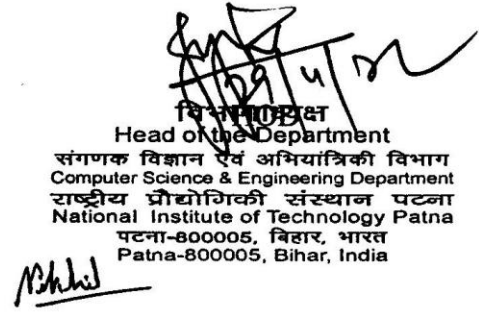 29/4/22
विभागाध्यक्ष
Head of the Department
संगणक विज्ञान एवं अभियांत्रिकी विभाग
Computer Science & Engineering Department
राष्ट्रीय प्रौद्योगिकी संस्थान पटना
National Institute of Technology Patna
पटना-800005, बिहार, भारत
Patna-800005, Bihar, India
Nikhil